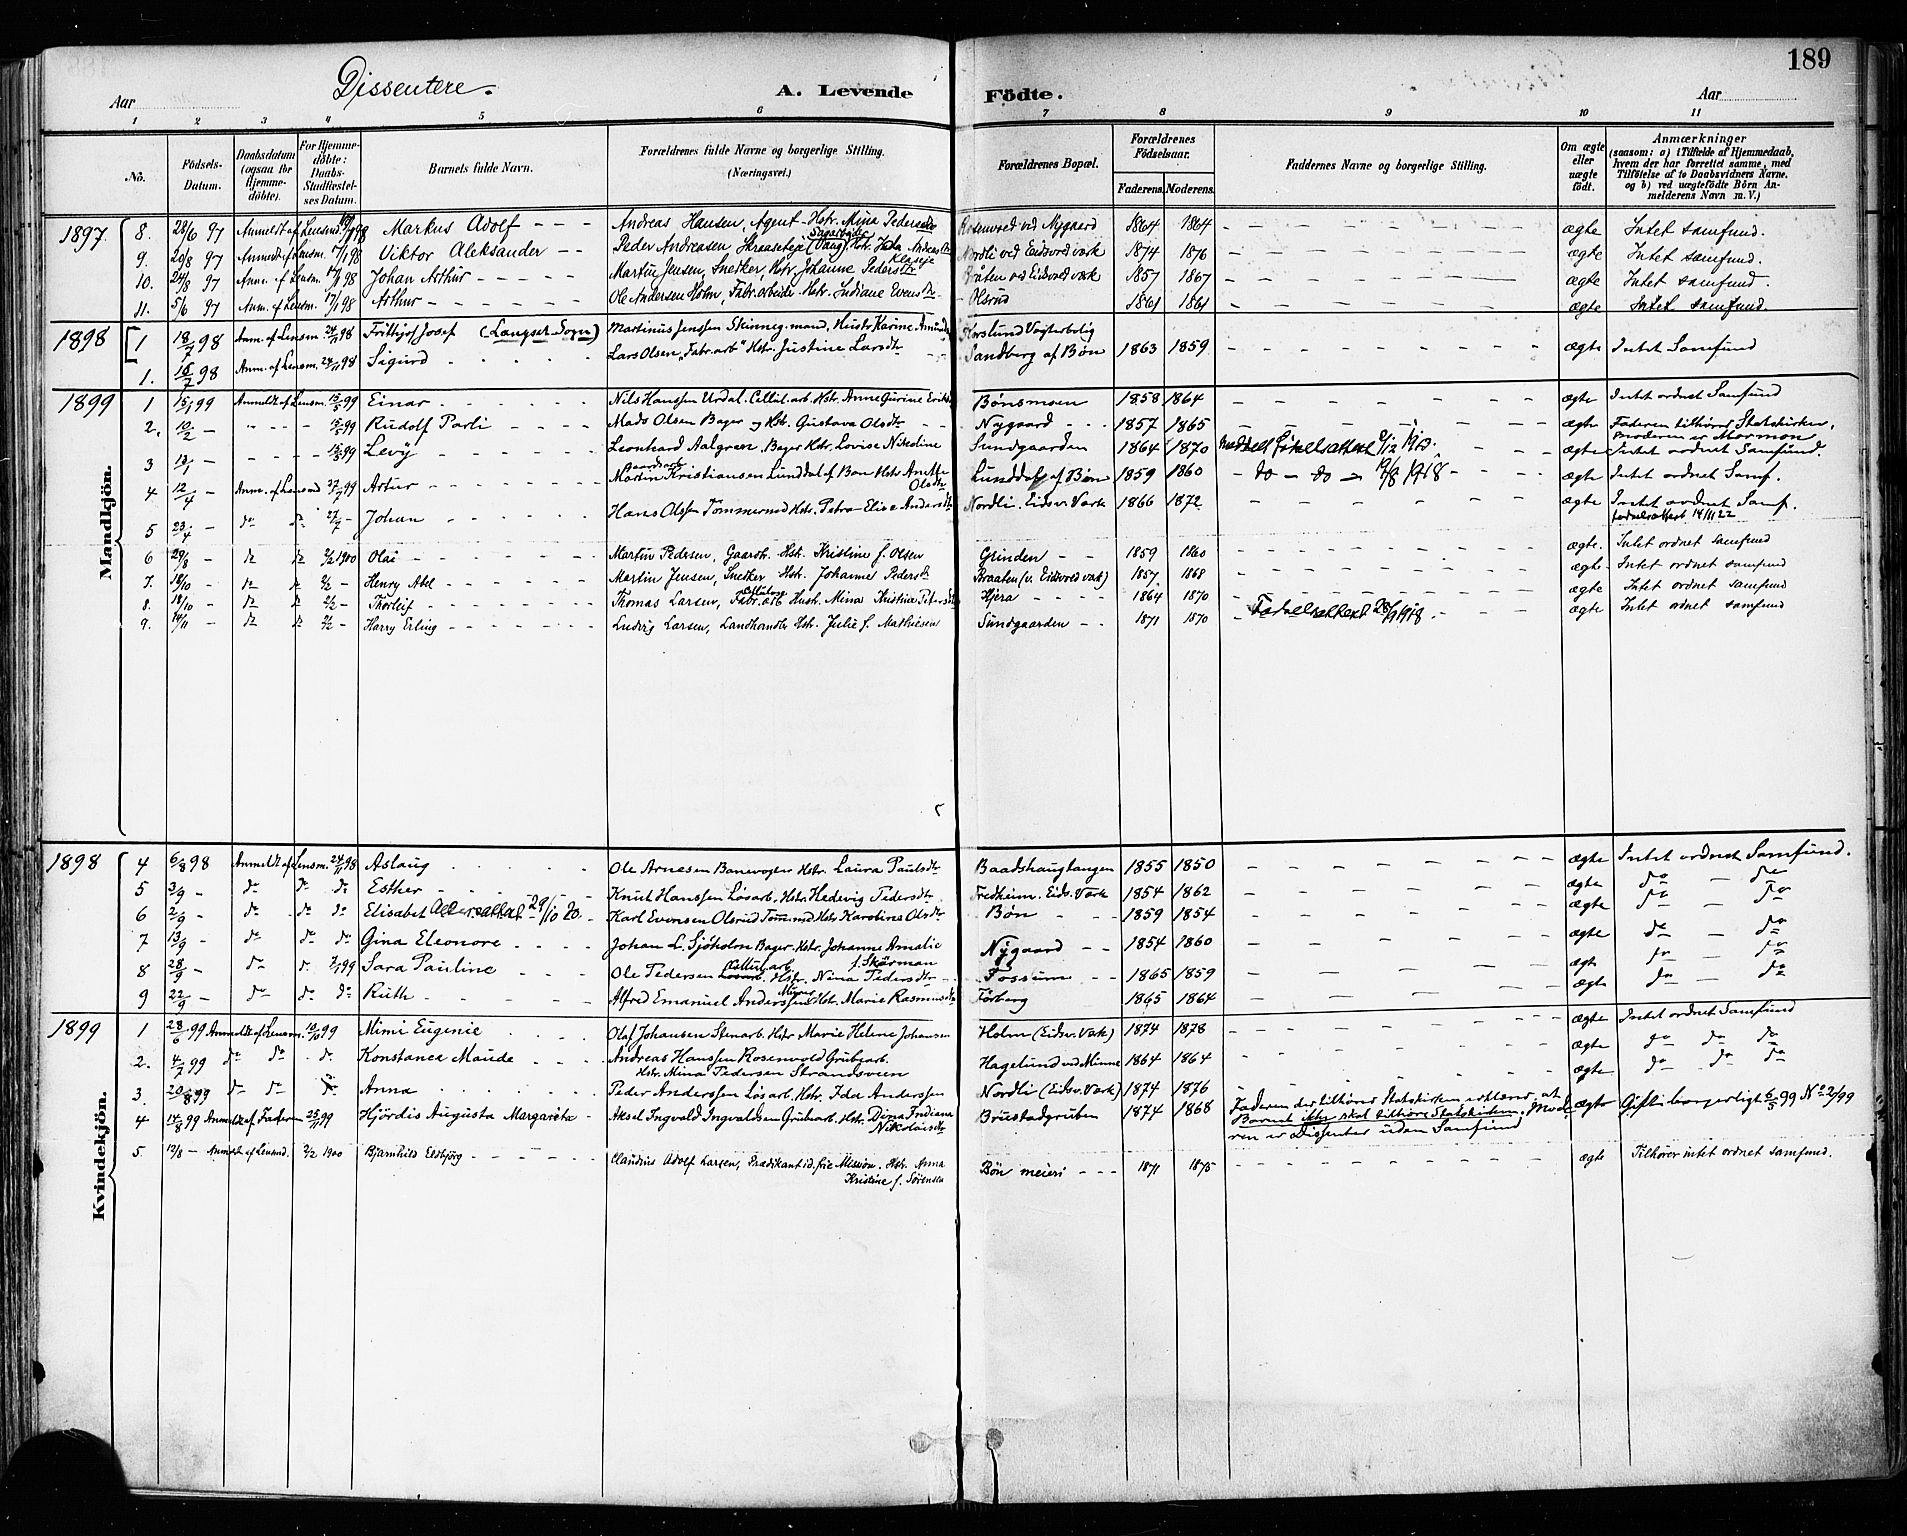 189
Dissentere.
A. Levende Födte.
Aar Aar
1 2 3 4 5 6 7 8 9 10 11
No. Födsels-Datum. Daabsdatum (ogsaa for Hjemme-döbte). For Hjemme-döbte: Daabs-Stadfæstel-ses Datum. Barnets fulde Navn. Forældrenes fulde Navne og borgerlige Stilling. (Næringsvei.) Forældrenes Bopæl. Forældrenes Födselsaar. Faderens. Moderens. Faddernes Navne og borgerlige Stilling. Om ægte eller uægte födt. Anmærkninger (saasom: a) i Tilfælde af Hjemmedaab, hvem der har forrettet samme, med Tilföielse af to Daabsvidners Navne. og b) ved uægtefödte Börn Anmelderens Navn m. V.)
Mandkjön.
1897 8. 28/6 97 Anmeldt af Lensm. 98 Markus Adolf - - - Andreas Hansen, Agent - Hstr. Mina Pedersen Rosenvold ved Nygaard 1864 1864 ægte Intet samfund.
9. 20/8 97 Anmeldt af Lensm. 17/1 98 Viktor Aleksander - - Peder Andreasen Hstr. Ida Andreas Nordli ved Eidsvold værk 1874 1876 ægte Intet samfund.
10. 24/8 97 Anm. af Lensm. 17/1 98 Johan Arthur - - - Martin Jensen, Snedker, Hstr. Johanne Pedersdtr Bråten ved Eidsvold værk 1857 1867 ægte Intet samfund.
11. 5/6 97 Anm. af Lensm. 17/1 98 Arthur - - - Ole Andersen Holm, Fabr. arbeider Hstr. Indiane Evensdtr - Olsrud 1861 1861 ægte Intet samfund.
1898 1 18/7 98 Anm. af Lensm. 24/11 98 Frithjof Josef (Langset Sogn) Martinus Jenssen Skinneg. mand, Hustr Karine Horslund Vogterbolig
1. 15/7 98 Anm. af Lensm. 24/11 98 Sigurd - - - Lars Olsen "Fabr. arb" Hstr. Justine Larsdtr Sandberg af Bøn 1863 1859 ægte Intet Samfund
1899 1 15/1 99 Anmeldt af Lensm. 15/5 99 Einar - - - Nils Hanssen Urdal. Cellul. arb. Hstr. Anne Gurine Bønsmoen 1858 1864 ægte Intet ordnet Samfund
2. 10/2 - 15/5 99 Rudolf Parli - - - Mads Olsen Bager og Hst. Gustava Olsdtr Nygaard - - - 1857 1865 ægte Faderen tilhører Statskirken,
Moderen er Mormon
3 13/1 - 15/5 99 Levy Leonhard Aalgreen Bager Hstr. Lovise Nikoline Sundgaarden 1864 1870 meddelt Fødselsattest ægte Intet ordnet Samfund.
4 12/4 - Anm. af Lensmd 27/7 99 Artur - - - Martin Kristiansen Lunddal af Bøn Hstr Anette Olsdtr Lunddal af Bøn 1859 1860 - do - do - 19/8 1918 ægte Intet ordnet Samf.
5 23/4 - do do 27/7 - Johan - - - Hans Olssen Tømmermd Hstr. Petra Elise Andersdtr Nordli. Eidsv. Værk 1866 1872 ægte Intet ordnet Samf.
fødselsattest 14/11 22
6 29/8 - do do 2/2 1900 Olai - - - Martin Pedersen, Gaardb. Hst. Kristine f. Olsen Grinden - - 1859 1860 ægte. Intet ordnet samfund
7. 18/10 - do do 2/2 - Henry Abel - - - Martin Jensen, Snetker Hst. Johanne Pedersdtr Braaten (v. Eidsvold værk) 1857 1868 ægte - Intet ordnet samfund
8. 18/10 - do do 2/2 - Thorleif - - - Thomas Larsen, Cellulose Fabr. arb Hust. Mina Kristine Petersdtr Hjera - - - 1864 1870 ægte Intet ordnet samfund
9. 14/11 - do do 2/2 - Harry Erling - - - Ludvig Larsen, Landhandler Hstr. Julie f. Mathiesen Sundgaarden - - 1871 1870 - Fødselsattest 28/9 1918 ægte Intet ordnet samfund
Kvindekjön.
1898 4 6/8 98 Anmeldt af Lensm. 24/11 98 Aslaug Ole Arnesen Banevogter Hstr. Laura Paulsdtr Baadshaugtangen 1855 1850 ægte Intet ordnet Samfund.
5 3/9 - do do do Esther Knut Hanssen Løsarb. Hstr. Hedevig Pedersdtr Fredheim. Eids. Værk 1854 1862 ægte do - do
6 2/9 - do do do Elisabet Aldersattest 29/10 20. Karl Evensen Olsrud Tømmermd Hstr Karoline Olsdtr Bøn - - - 1859 1854 ægte do - do
7 13/9 - do do do Gina Eleonore - - - Johan L. Sjøholm Bager. Hstr. Johanne Amalie f. Skärman Nygaard - - 1854 1860 ægte do - do
8 28/9 - do do 7/1 99 Sara Pauline - - - Ole Pedersen Løsarb. Cellul. arb. Hstr. Nina Pedersdtr Fossum - - 1865 1859 ægte do - do
9 22/9 - do do do Ruth - - - Alfred Emanuel Anderssen Hstr. Marie Rasmusdtr Førberg 1865 1864 ægte do - do
1899 1 28/6 99 Anmeldt af Lensm. 10/10 99 Mimi Eugenie Olaf Johansen Stenarb. Hstr Marie Helene Johansen Holm (Eidsv. Værk) 1874 1878 ægte Intet ordnet Samfund
2. 4/7 99 do do do Konstance Maude Andreas Hanssen Rosenvold Grubearb.
Hstr. Mina Pedersen Strandsveen Hagelund ved Minne 1864 1864 ægte do do do
3. 20/8 99 do do do Anna Peder Anderssen Løsarb. Hstr. Ida Anderssen Nordli (Eidsv. Værk) 1874 1876 ægte do do do
4 14/8 99 Anmeldt af Faderen 25/11 99 Hjördis Augusta Margareta - Aksel Ingvald Ingvaldsen Grubarb. Hstr. Dina Indiana Nikolaisdtr Brustadgruben 1874 1868 Faderen der tilhører Statskirken erklærer, at
Barnet ikke skal tilhøre Statskirken. Mod.
ren er Dissenter uden Samfund ægte Gift borgerligt 6/5 99 No 2/99
5 12/8 - Anmeldt af Lensmd. 2/2 1900 Bjarnhild Eldbjørg - - - Claudius Adolf Larsen, Prædikant i d. frie Mission. Hstr. Anna
Kristine f. Sørensen Bøn meieri - - - 1871 1875 ægte Tilhører intet ordnet samfund.